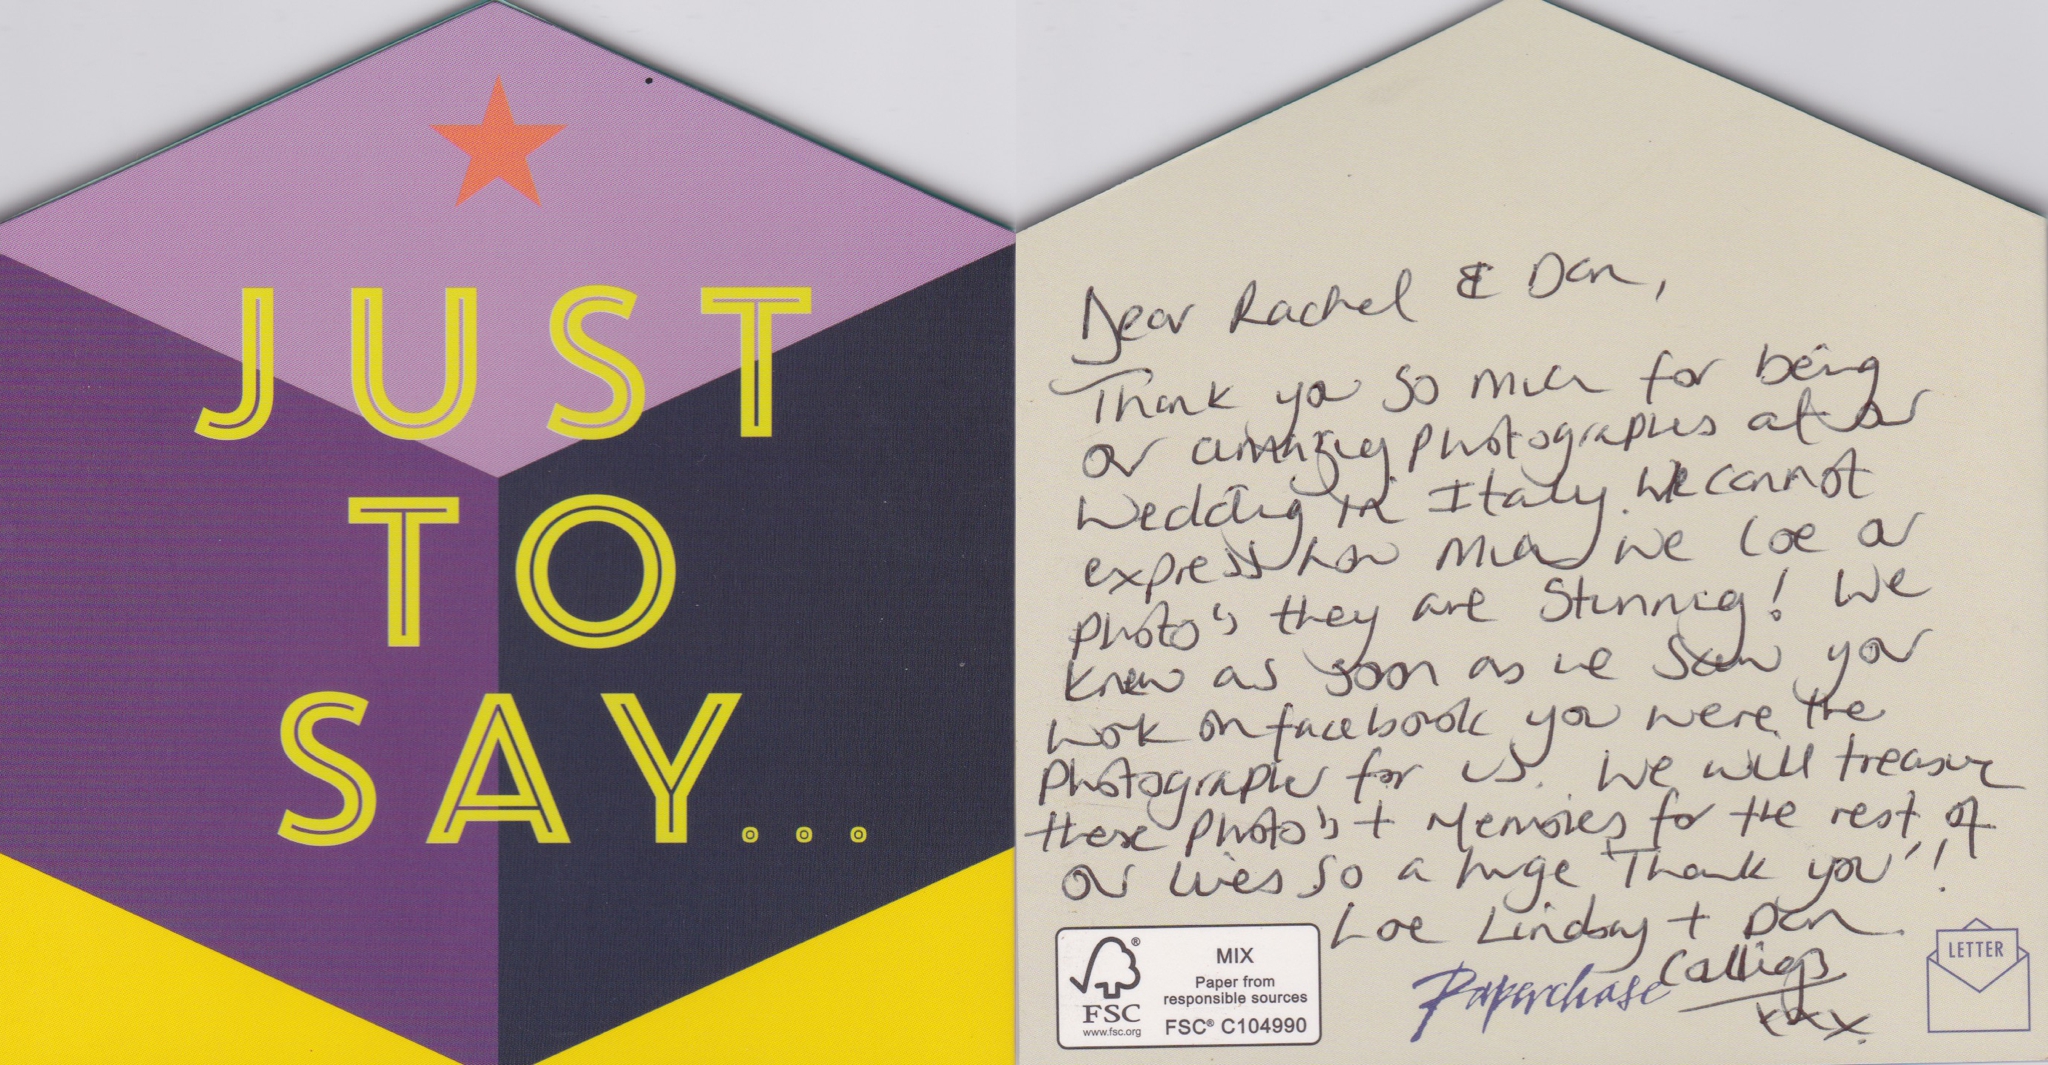 JUST
TO
SAY...
Dear Rachel & Dan,
Thank you so much for being
our amazing photographers at our
wedding in Italy. We cannot
express how much we love our
photo's they are stunning! We
knew as soon as we saw your
work on facebook you were the
photographer for us. We will treasure
these photo's + memories for the rest of
our lives so a huge 'Thank you'!
Love Lindsay + Dan
xxx.
Paperchase
FSC
www.fsc.org
MIX
Paper from
responsible sources
FSC® C104990
LETTER